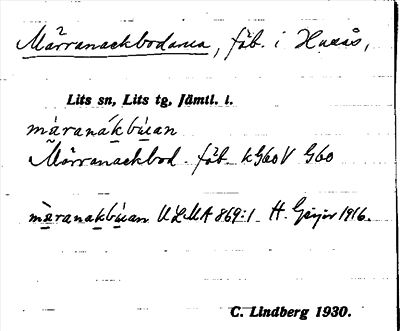 Märranackbodarna, fäb. i Husås,
Lits sn, Lits tg, Jämtl. l.
màranákbúan
Märranackbod. fäb. kG60V G60
màranakbúan ULMA 869:1 H. Geijer 1916.
C. Lindberg 1930.